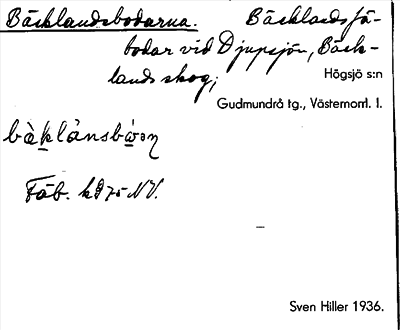 Bäcklandsbodarna. Bäcklands fä-
bodar vid Djupsjön, Bäck-
lands skog;
Högsjö s:n
Gudmundrå tg., Västernorrl. l.
bàk̲lånsbὼ̲ɔn
Fäb. kg 75 NV.
Sven Hiller 1936.